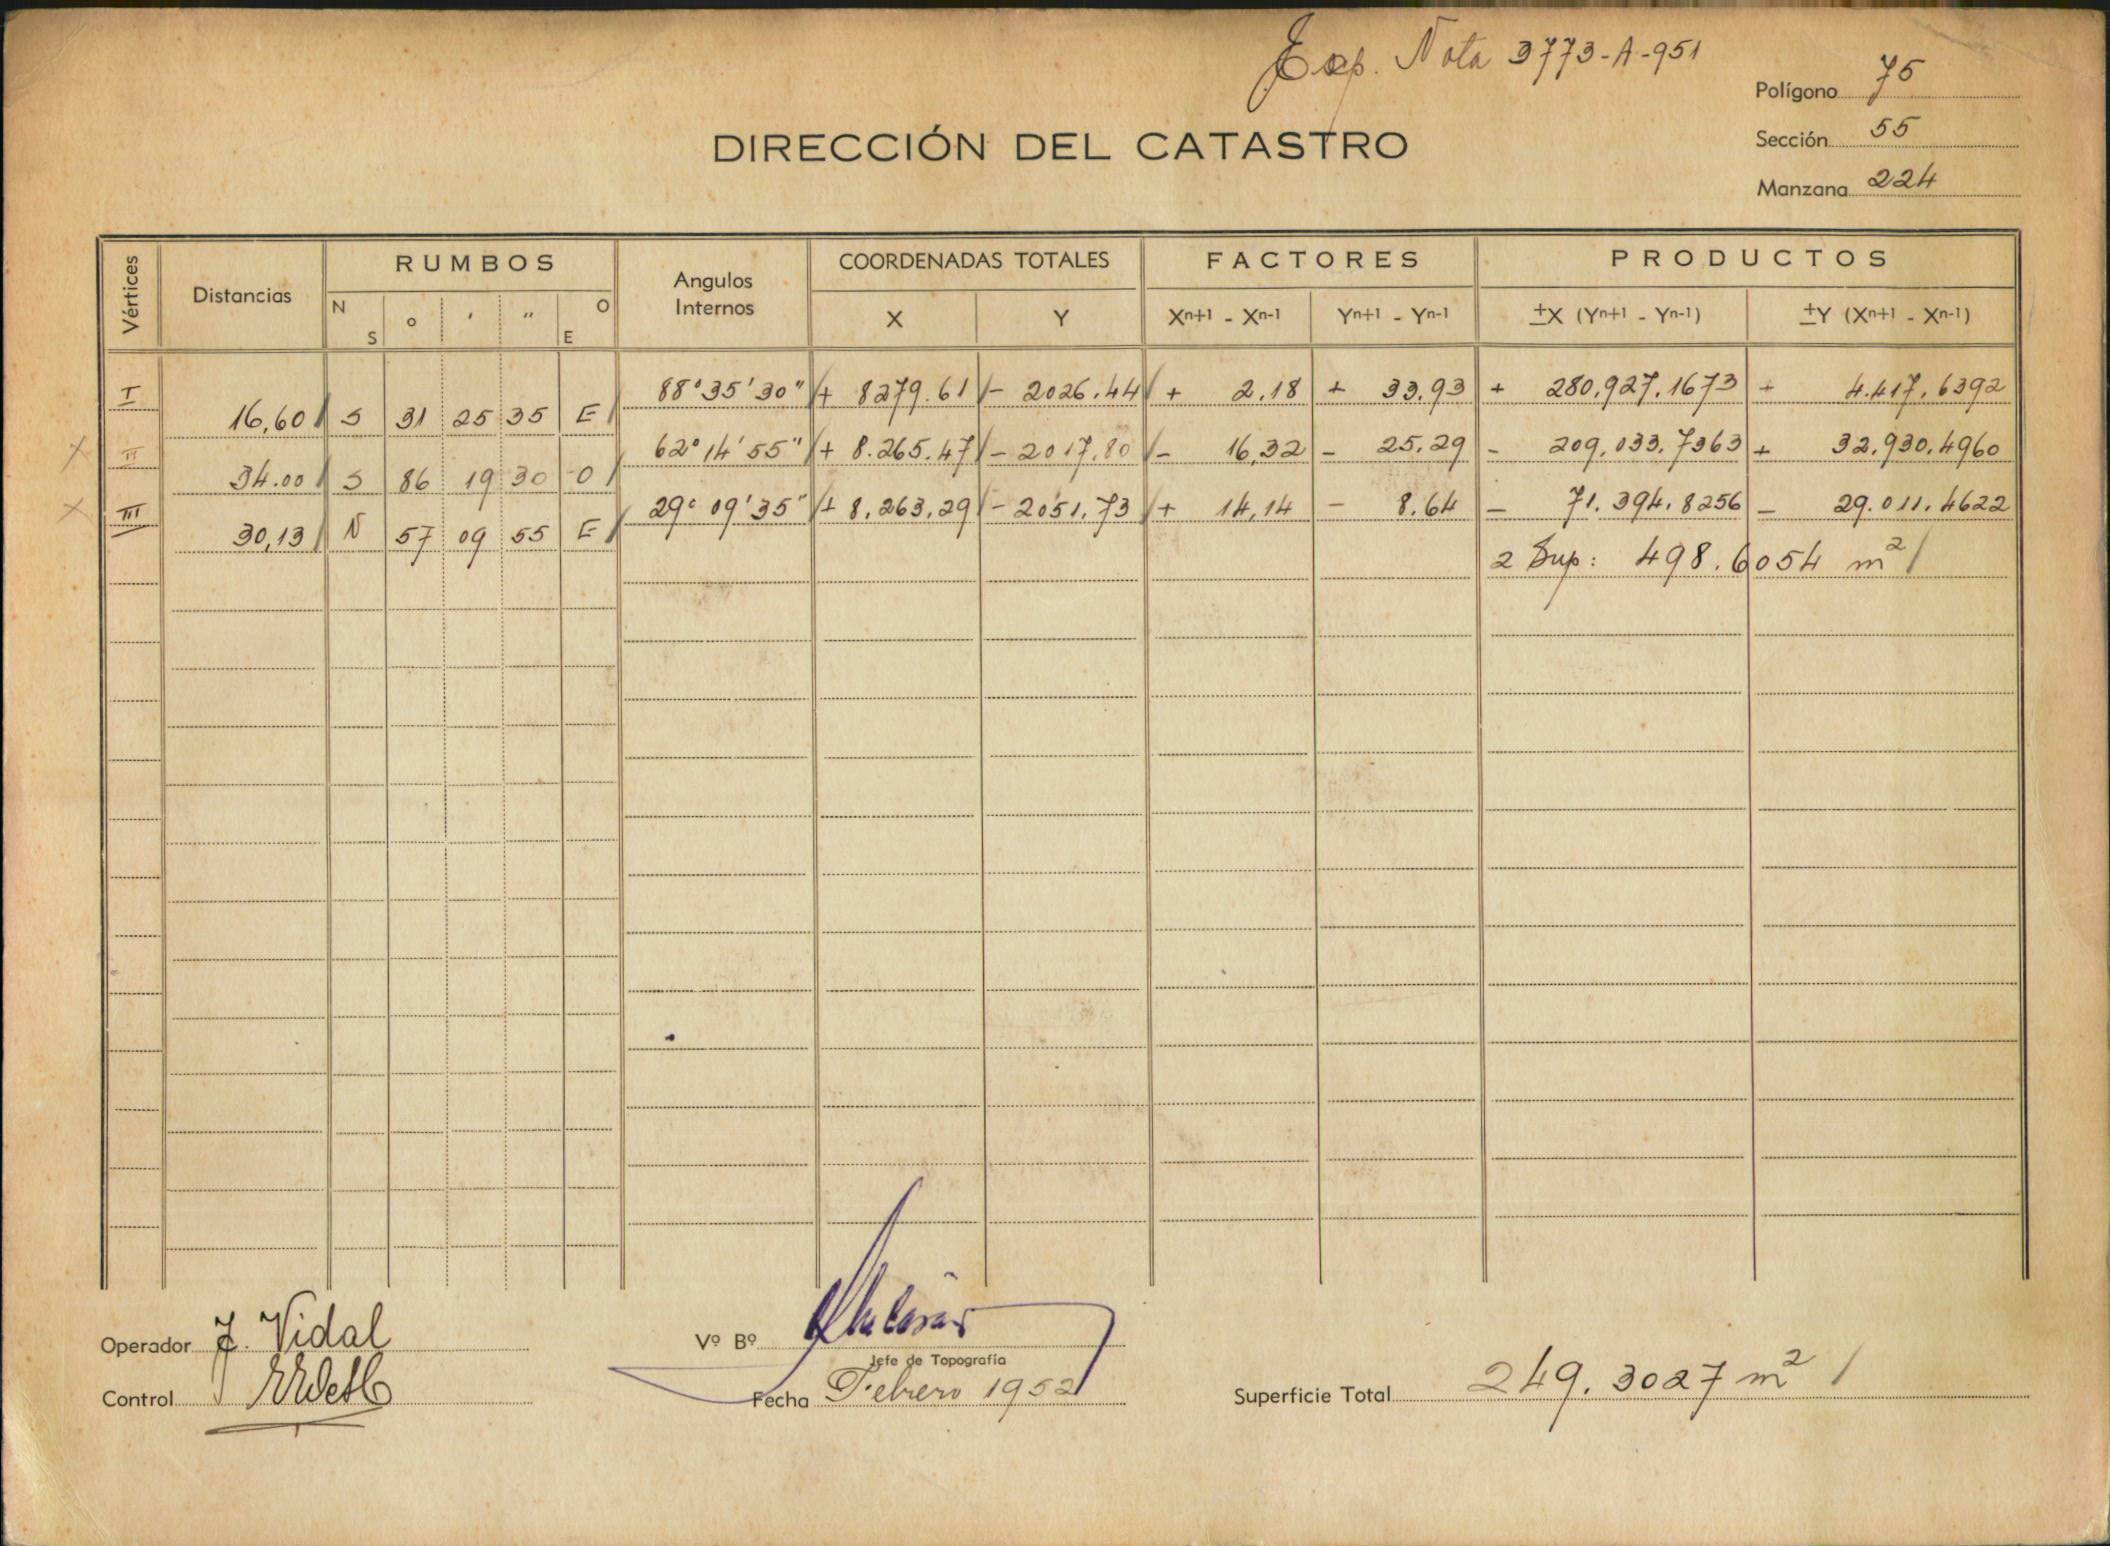 Exp. Nota 3773-A-951
Polígono 75
DIRECCIÓN DEL CATASTRO
Sección 55
Manzana 224
Vértices Distancias RUMBOS Angulos Internos COORDENADAS TOTALES FACTORES PRODUCTOS
N S o ' " O E X Y Xn+1 - Xn-1 Yn+1 - Yn-1 ±X (Yn+1 - Yn-1) ±Y (Xn+1 - Xn-1)
I 88°35'30" + 8279.61 - 2026.44 + 2,18 + 33,93 + 280,927,1673 + 4.417,6392
16,60 S 31 25 35 E
II 62°14'55" + 8.265.47 - 2017,80 - 16,32 - 25,29 - 209,033,7363 + 32,930,4960
34.00 S 86 19 30 O
III 29°09'35" + 8,263,29 - 2051,73 + 14,14 - 8,64 - 71.394,8256 - 29.011.4622
30,13 N 57 09 55 E
2 Sup: 498.6054 m²
Operador J. Vidal
Vº Bº
Jefe de Topografía
Control
Fecha Febrero 1952
Superficie Total 249.3027 m²